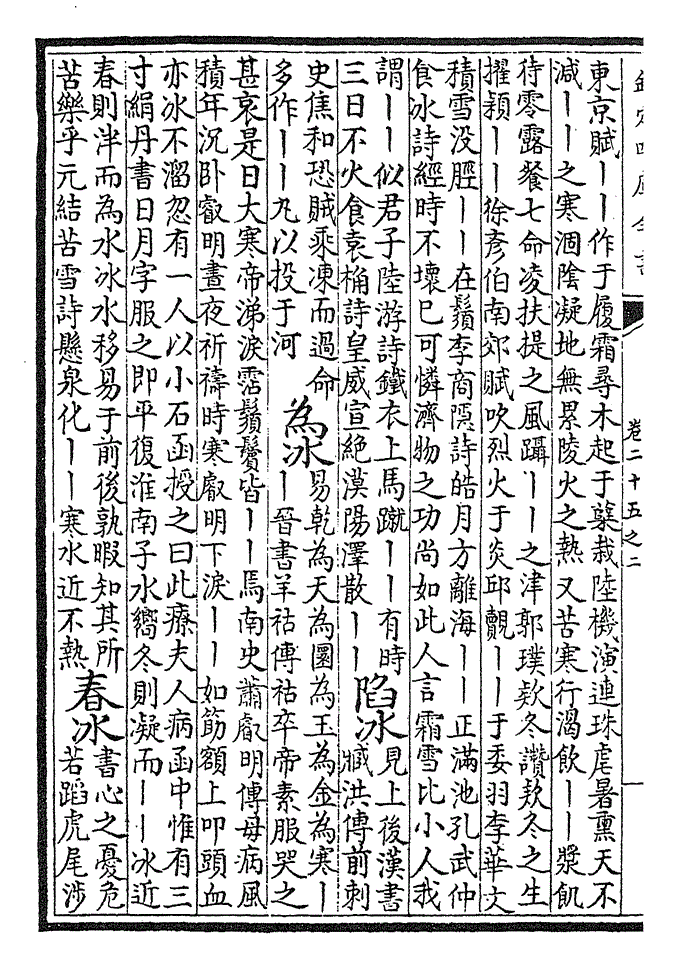 欽定四庫全書
卷二十五之二
東京賦丨丨作于履霜尋木起于櫱栽陸機演連珠虐暑熏天不
減丨丨之寒涸陰凝地無累陵火之熱又苦寒行渴飲丨丨漿飢
待零露餐七命凌扶提之風躡丨丨之津郭璞欵冬讚欵冬之生
擢穎丨丨徐彥伯南郊賦吹烈火于炎邱覿丨丨于委羽李華文
積雪没脛丨丨在鬚李商隱詩皓月方離海丨丨正滿池孔武仲
食冰詩經時不壞已可憐濟物之功尚如此人言霜雪比小人我
謂丨丨似君子陸游詩鐵衣上馬蹴丨丨有時
三日不火食袁桷詩皇威宣絶漠陽澤散丨丨
陷冰
見上後漢書
臧洪傳前刺
史焦和恐賊乘凍而過命
多作丨丨丸以投于河
為冰
易乾為天為圜為玉為金為寒丨
丨晉書羊祜傳祜卒帝素服哭之
甚哀是日大寒帝涕淚霑鬚鬢皆丨丨焉南史蕭叡明傳母病風
積年沉卧叡明晝夜祈禱時寒叡明下淚丨丨如筯額上叩頭血
亦冰不溜忽有一人以小石函授之曰此療夫人病函中惟有三
寸絹丹書日月字服之即平復淮南子水嚮冬則凝而丨丨冰近
春則泮而為水冰水移易于前後孰暇知其所
苦樂乎元結苦雪詩懸泉化丨丨寒水近不熱
春冰
書心之憂危
若蹈虎尾涉